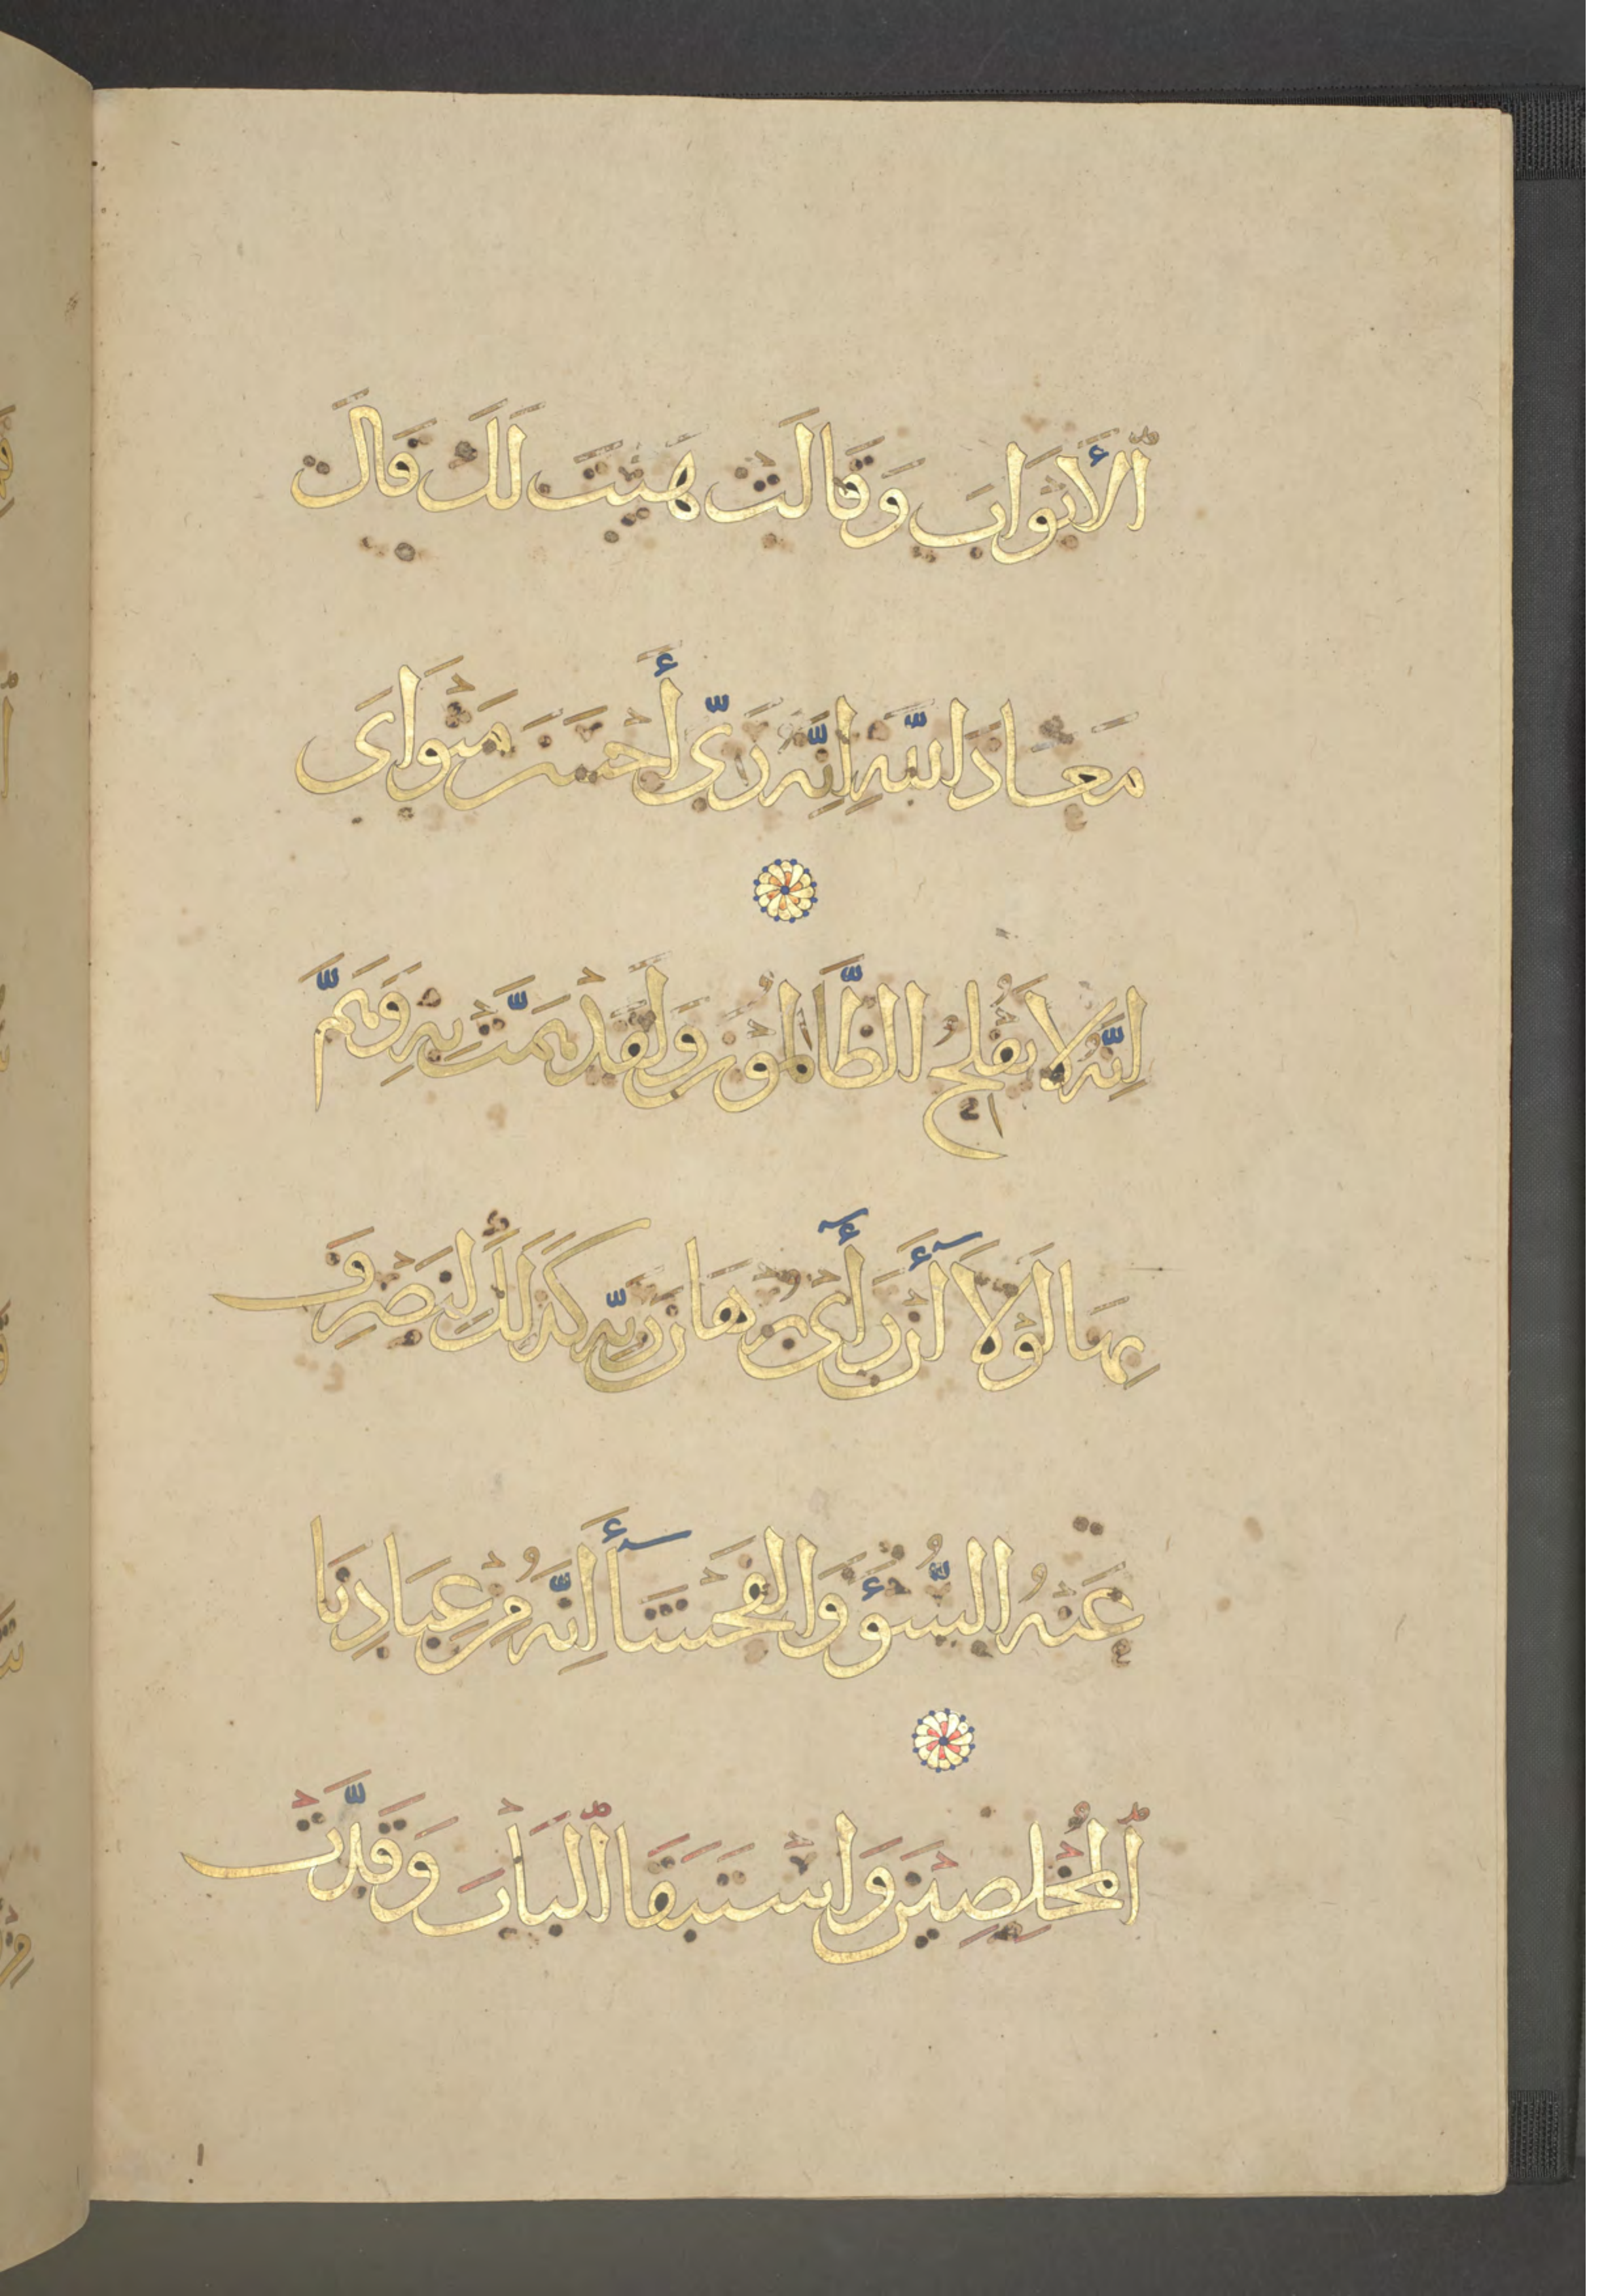 ٱلأَبْوَابَ وَقَالَتْ هَيْتَ لَكَ قَالَ
مَعَاذَ اللَّهِ اِنَّهُ رَبِّي أَحْسَنَ مَثْوَاىَ
اِنَّهُ لَا يُفْلِحُ الظَّالِمُونَ وَلَقَدْ هَمَّتْ بِهِ وَهَمَّ
بِهَا لَوْلَآ أَن رَأَىٰ بُرْهَانَ رَبِّهِ كَذَلِكَ لِنَصْرِفَ
عَنْهُ السُّوْءَ وَالْفَحْشَآءَ إِنَّهُ مِنْ عِبَادِنَا
ٱلْمُخْلَصِينَ وَاسْتَبَقَا ٱلْبَابَ وَقَدَّتْ